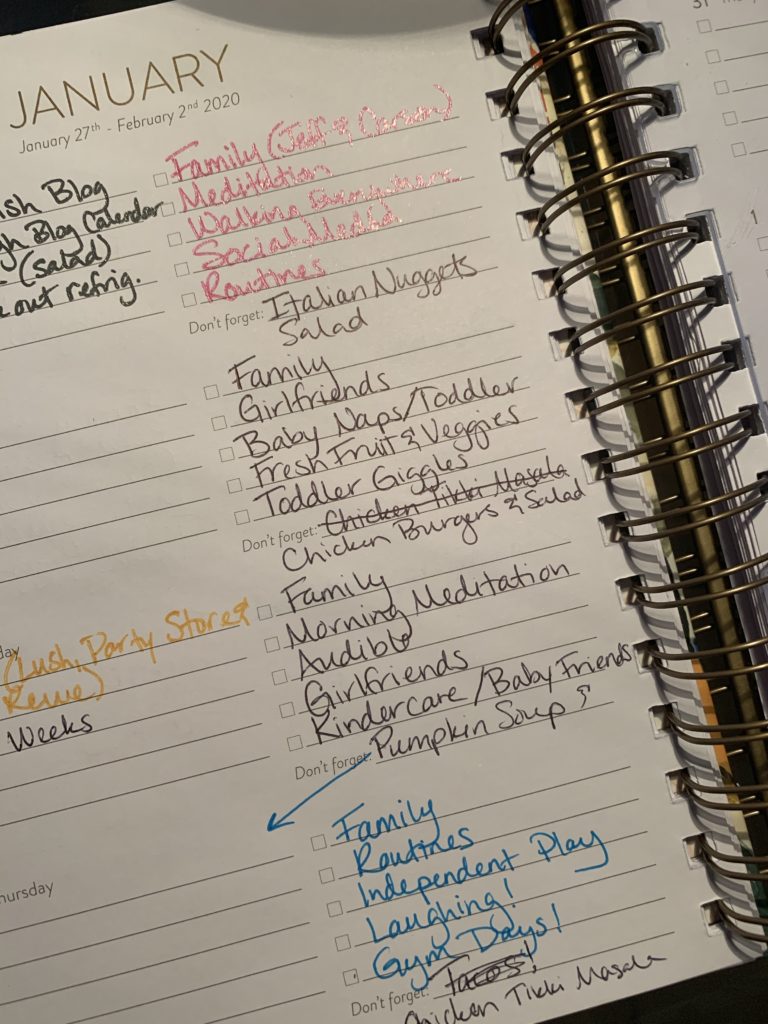 JANUARY
January 27th - February 2nd 2020
31
ish Blog
gh Blog Calendar
(Salad)
e out refrig.
Family (Jeff & Carson)
Meditation
Walking Everywhere
Social Media
Routines
Don't forget: Italian Nuggets
Salad
1
Family
Girlfriends
Baby Naps/Toddler
Fresh Fruit & Veggies
Toddler Giggles
Don't forget: Chicken Tikki Masala
Chicken Burgers & Salad
day
(Lush, Party Store &
Rewe)
Weeks
Family
Morning Meditation
Audible
Girlfriends
Kindercare/Baby Friends
Don't forget: Pumpkin Soup
hursday
Family
Routines
Independent Play
Laughing!
Gym Days!
Don't forget: Tacos!
Chicken Tikki Masala